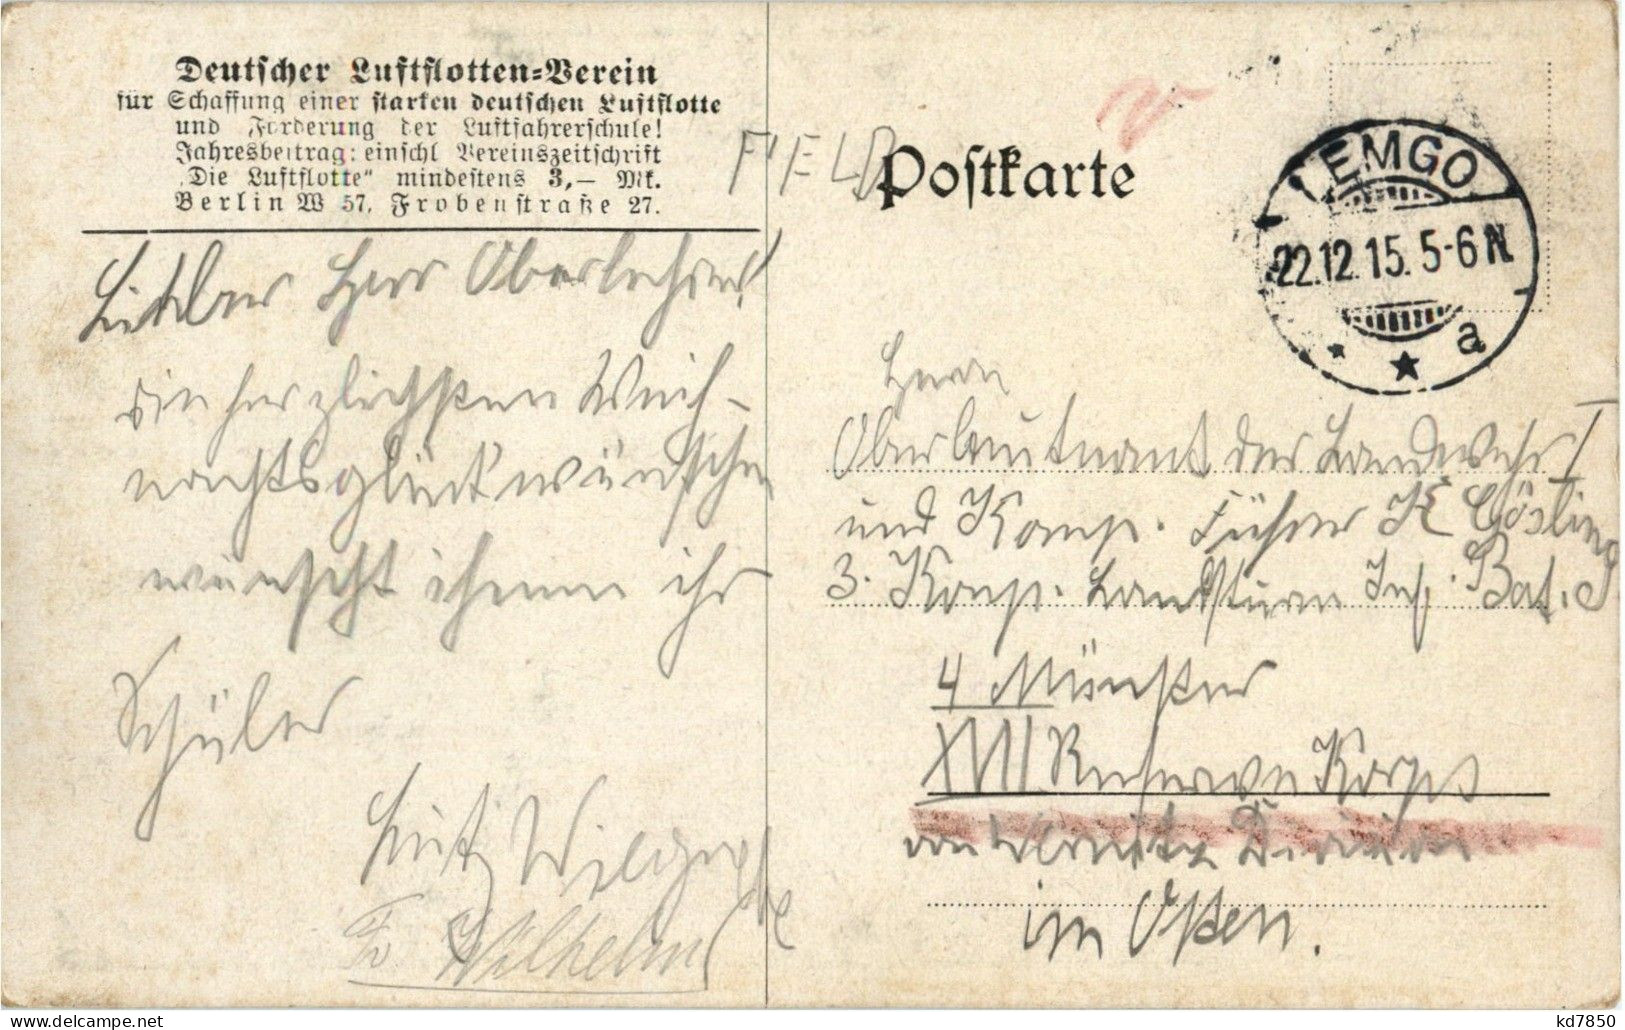 Deutscher Luftflotten=Verein
für Schaffung einer starken deutschen Luftflotte
und Forderung der Luftfahrerschule!
Jahresbeitrag: einschl Vereinszeitschrift
„Die Luftflotte“ mindestens 3,— Mk.
Berlin W 57, Frobenstraße 27.
FIELD
Postkarte
LEMGO
22.12.15. 5-6 N.
a
Herr Oberlehrer!
die herzlichsten Weih-
nachtsglückwünsche
wünscht ihnen ihr
Schüler
Fritz
Wilhelm
Herrn
Oberleutnant der Landwehr I
und Komp. Führer K Gösling
3. Komp. Landsturm Inf. Bat.
4 Münster
XVII Reserve Korps
Division
im Osten.
kd7850